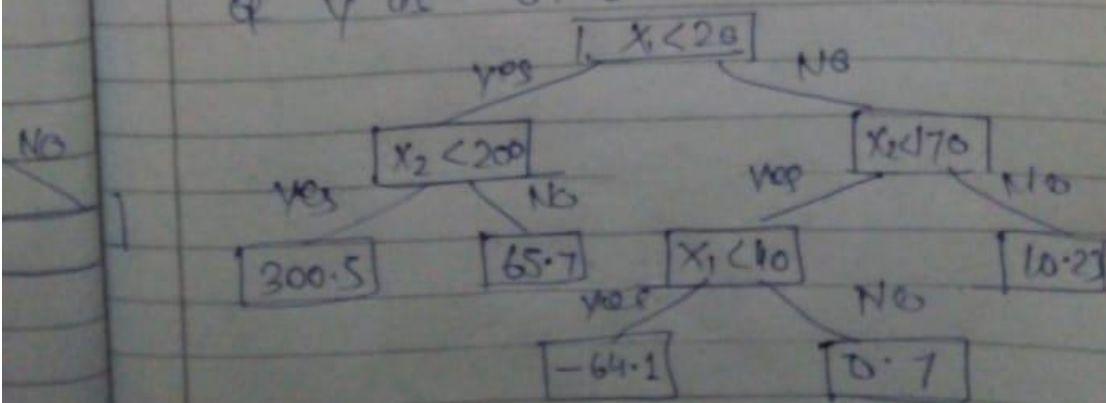 X₁ < 20
yes NO
NO X₂ < 200 X₂<170
yes NO yes NO
300.5 65.7 X₁ <40 10.23
yes NO
-64.1 0.7